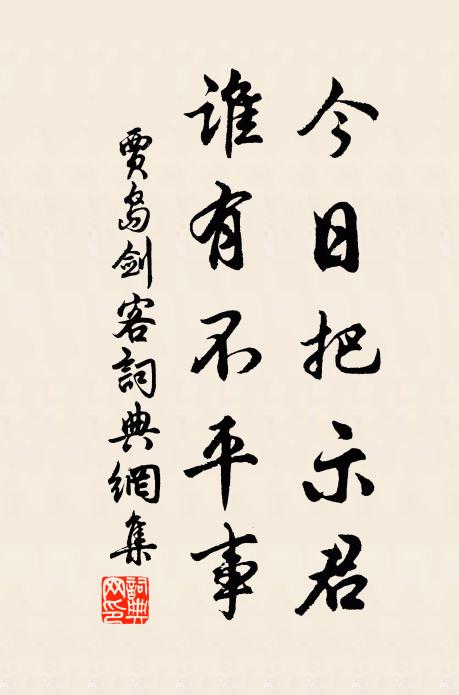 今日把示君
誰有不平事
賈島劍客詞典網集
詞典网印